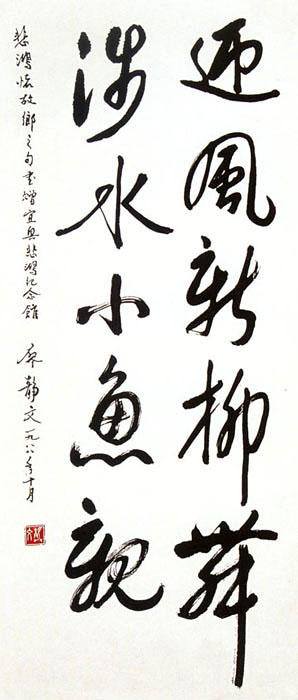 迎風新柳舞
涉水小魚親
悲鴻懷故鄉之句書贈宜興悲鴻紀念館
廖靜文一九八八年十月